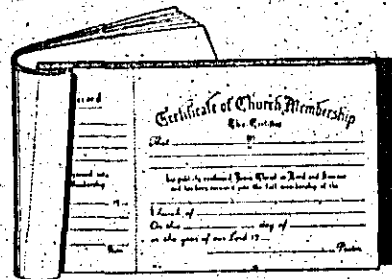 ecord
Certificate of Church Membership
This Certifies
That
has publicly confessed Jesus Christ as Lord and Saviour
and has been received into the full membership of the
Church of
On this day of
in the year of our Lord 19
Pastor